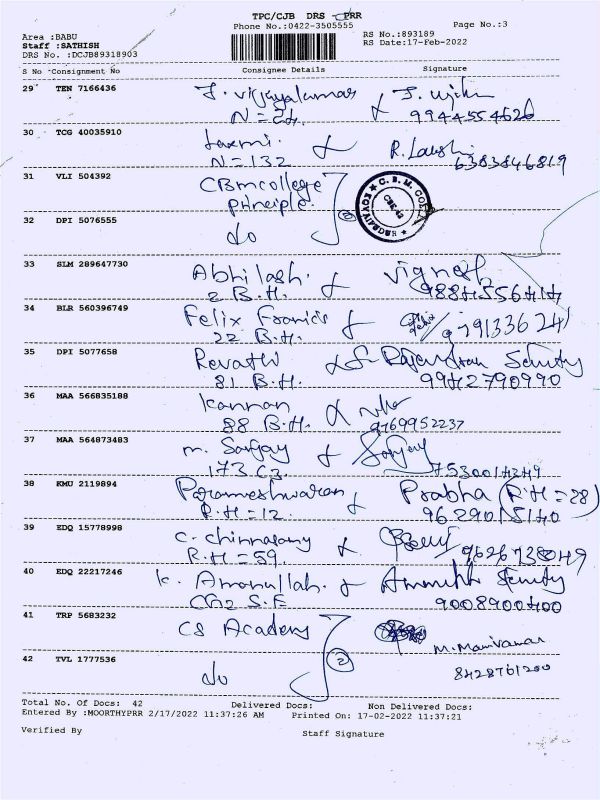 TPC/CJB DRS - PRR
Phone No.:0422-3505555 Page No.:3
Area :BABU RS No.:893189
Staff :SATHISH RS Date:17-Feb-2022
DRS No. :DCJB89318903
S No Consignment No Consignee Details Signature
29 TEN 7166436 J. Vijayakumar
N = 24. 9944554626
30 TCG 40035910 Laxmi R. Lakshi
N = 132 6383846819
31 VLI 504392 CBM college
principle. 2
C.B.M. COLLEGE
KOVAIPUDUR
CBE-42
32 DPI 5076555 do
33 SLM 289647730 Abhilash. Vignesh
2 B.H. 9884556414
34 BLR 560396749 Felix Francis
22 B.H.
35 DPI 5077658 Revathi Rajendran Security
81 B.H. 9942790990
36 MAA 566835188 Kannan
88 B.H. 9769952237
37 MAA 564873483 M. Sanjay Sanjay
173 C3 7530014349
38 KMU 2119894 Parameshwaran Prabha (R.H = 28)
R.H = 12. 9629015140
39 EDQ 15778998 C. Chinnasamy
R.H = 59. 9626728049
40 EDQ 22217246 K. Amanullah. Security
CG2 S.F 9008900400
41 TRP 5683232 CS Academy
M. Manivannan
42 TVL 1777536 do 2 8428761200
Total No. Of Docs: 42 Delivered Docs: Non Delivered Docs:
Entered By :MOORTHYPRR 2/17/2022 11:37:26 AM Printed On: 17-02-2022 11:37:21
Verified By Staff Signature